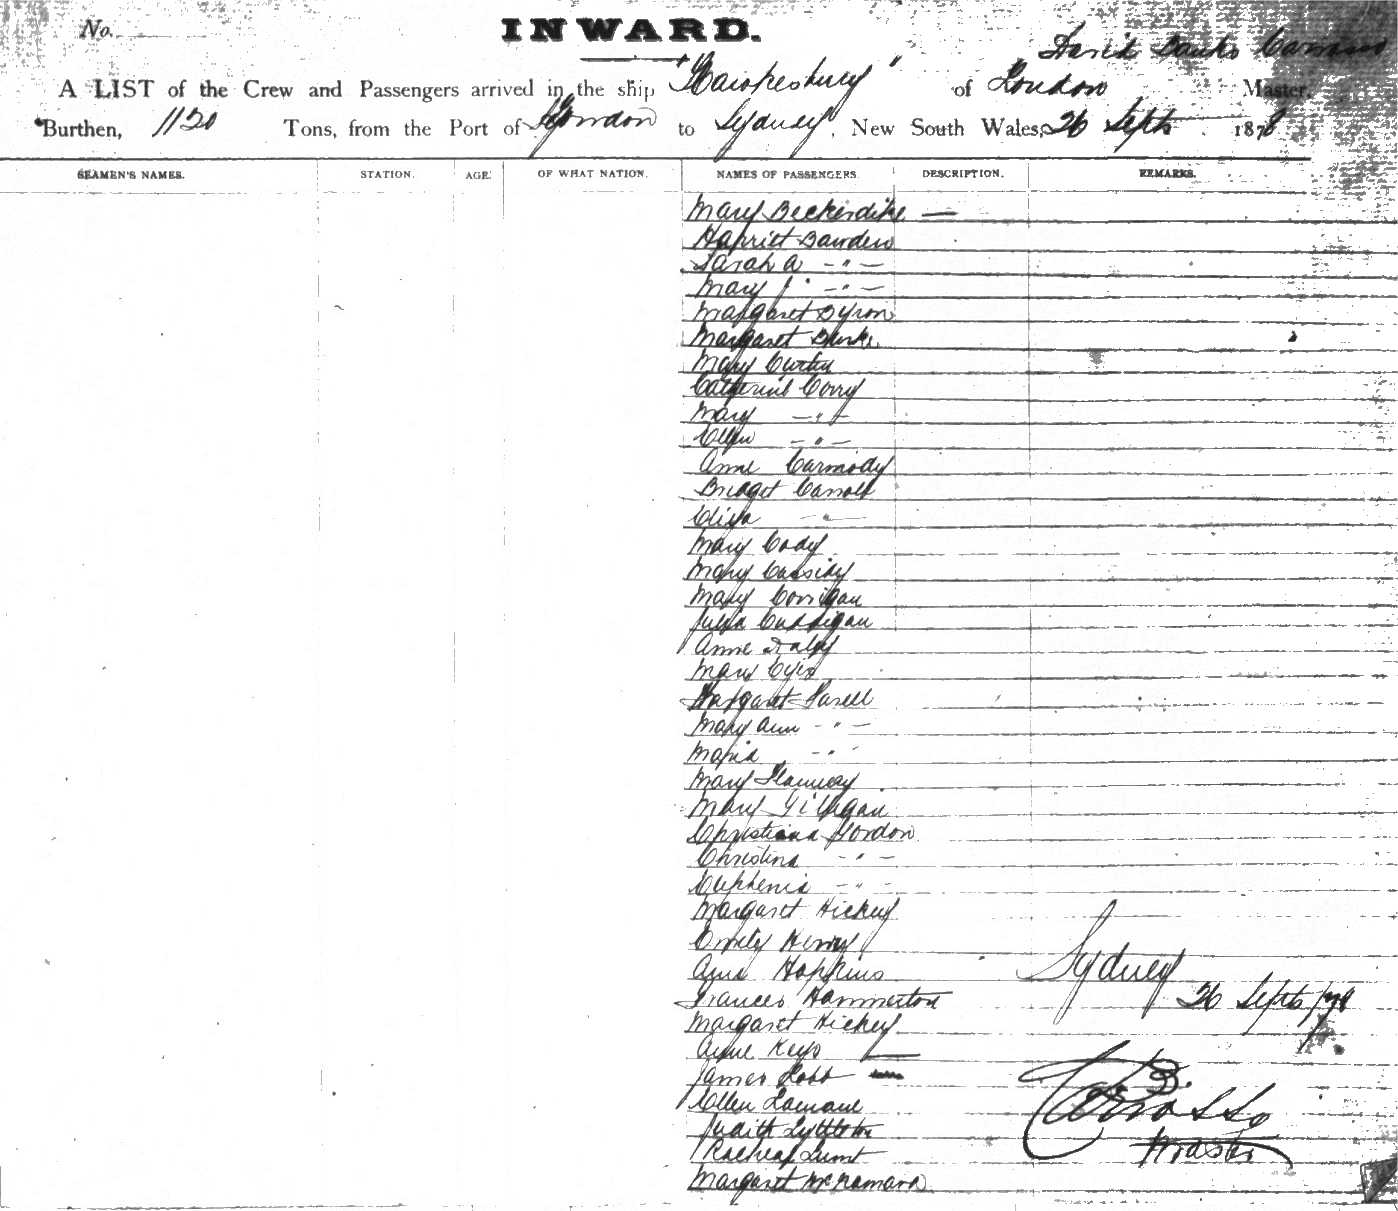 No.
INWARD.
David Banks Carrosso
A LIST of the Crew and Passengers arrived in the ship "Hawkesbury" of London Master,
Burthen, 1120 Tons, from the Port of London to Sydney, New South Wales, 26 Septr 1878
SEAMEN'S NAMES. STATION. AGE. OF WHAT NATION. NAMES OF PASSENGERS. DESCRIPTION. REMARKS.
Mary Beckerdike —
Harriet Bawden
Sarah A —"—
Mary J —"—
Margaret Byron
Margaret Burke
Mary Curtin
Catherine Corry
Mary —"—
Ellen —"—
Anne Carmody
Bridget Carroll
Eliza —"—
Mary Cody
Mary Cassidy
Mary Corrigan
Julia Cuddigan
Anne Daly
Mary
Margaret Farell
Mary Ann —"—
Maria —"—
Mary Flannery
Mary Gilligan
Christiana Gordon
Christina —"—
Euphemia —"—
Margaret Hickey
Emily Henry
Sydney
Ann Hopkins
26 Septr/78
Frances Hammerton
Margaret Hickey
Anne Keys —
James Lobb
Ellen
Judith Lyttleton
Master
Racheal Lunt
Margaret McNamara